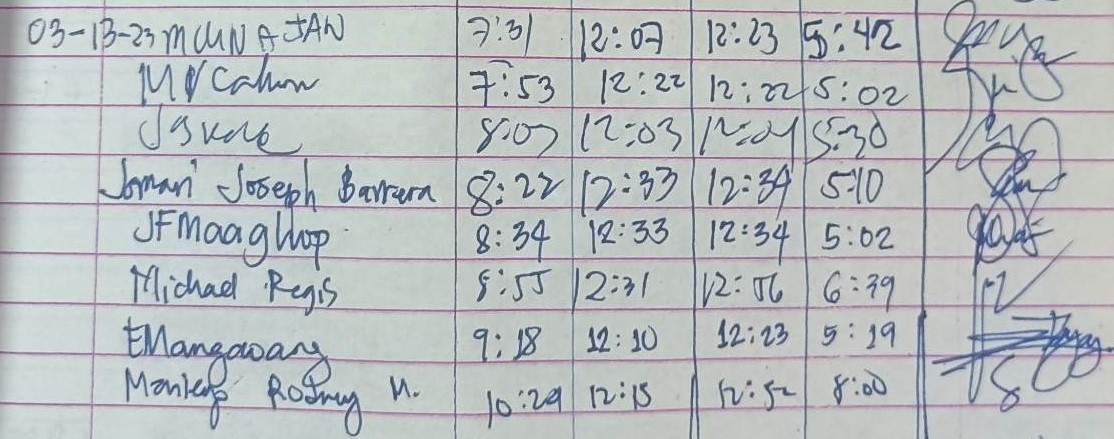 03-13-23 MCMNAJAN 7:31 12:07 12:23 5:42
7:53 12:22 12:22 5:02
8:07 12:03 12:04 5:30
Jomari Joseph Barrera 8:22 12:33 12:34 5:10
JFMaaghop 8:34 12:33 12:34 5:02
Michael Regis 8:55 12:31 12:56 6:39
EMangawang 9:18 12:10 12:23 5:19
Rodney M. 10:29 12:15 12:52 8:00